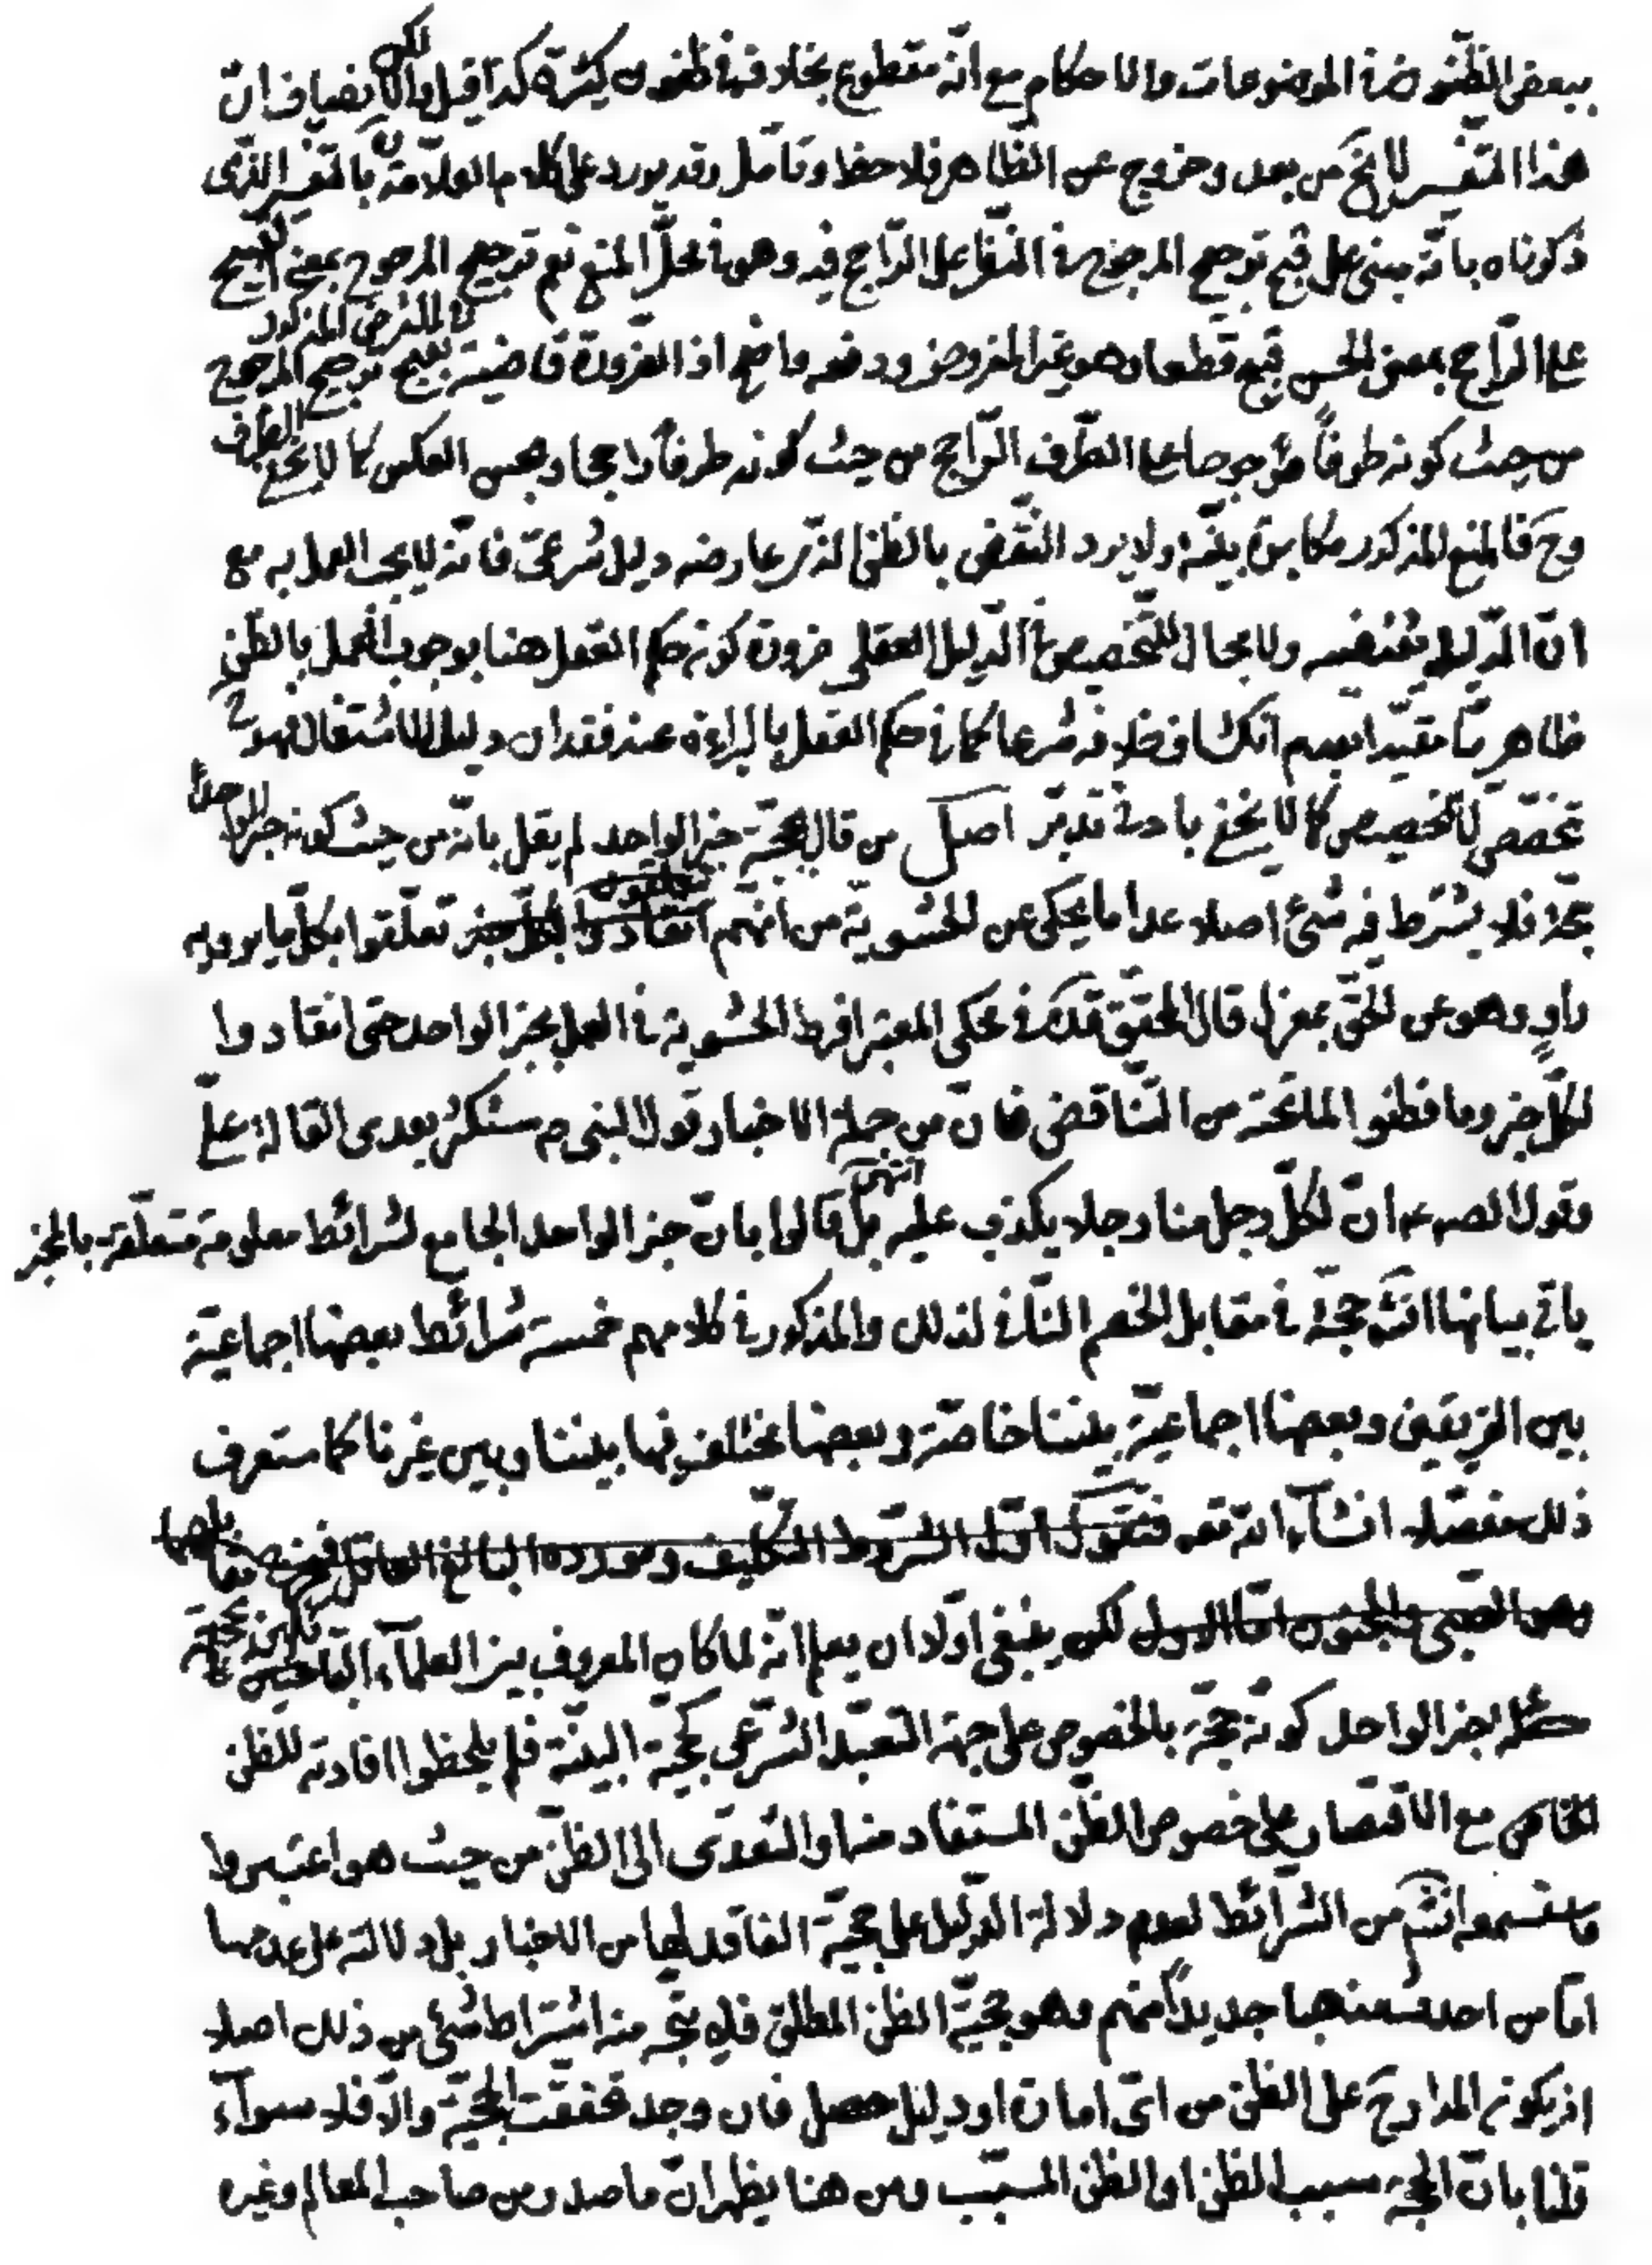 ببعض الظنون في الموضوعات والاحكام مع انّه مقطوع بخلافه في ظنون كثيرة كذا قيل ولكن الانصاف انّ
هذا التفسير لا يخ من بعد وخروج عن الظاهر فلاحظ وتامّل وقد يورد على كلام العلّامة ره بالتفسير الذى
ذكرناه بانّه مبنى على قبح ترجيح المرجوح في النظر على الرّاجح فيه وهو في محلّ المنع نعم ترجيح المرجوح بمعنى القبيح
على الرّاجح بمعنى الحسن قبيح قطعا وهو غير المفروض ودفعه واضح اذ الضرورة قاضية في الفرض المذكور بقبح ترجيح المرجوح
من حيث كونه طرفاً مرجوحا على الطّرف الرّاجح من حيث كونه طرفاً راجحا وبحسن العكس كما لا يخفى
وح فالمنع المذكور مكابرة بيّنة ولا يرد النّقض بالظنّ الذى يعارضه دليل شرعىّ فانّه لا يجب العمل به مع
انّ الدّليل يقتضيه ولا مجال للتّخصيص في الدّليل العقلى ضرورة كون حكم العقل هنا بوجوب العمل بالظنّ
ظاهريّا مقيّدا بعدم انكشاف خلافه شرعا كما في حكم العقل بالبراءة عند فقدان دليل الاشتغال فهو ح
تخصّص لا تخصيص كما لا يخفى بادنى تدبّر اصل من قال بحجّية خبر الواحد لم يقل بانّه من حيث كونه خبرا واحدا
حجّة فلا يشترط فيه شئ اصلا عدا ما يحكى عن الحشوية من انّهم انقادوا لكلّ خبر تعلّقوا بكلّ ما يرويه
راوٍ وهو عن الحقّ بمعزل قال المحقّق قدّه في محكى المعتبر افرط الحشوية في العمل بخبر الواحد حتى انقادوا
لكلّ خبر وما فطنوا لما تحته من التّناقض فانّ من جملة الاخبار قول النبى ص ستكثر بعدى القالة علىّ
وقول الصادق ع انّ لكلّ رجل منا رجلا يكذب عليه انتهى بل قالوا بانّ خبر الواحد الجامع لشرائط معلومة متعلّقة بالمخبر
ياتى بيانها انش حجّة في مقابل الخصم النّافى لذلك والمذكور في كلامهم خمسة شرائط بعضها اجماعيّة
بين الفريقين وبعضها اجماعيّة بيننا خاصّة وبعضها مختلف فيها بيننا وبين غيرنا كما ستعرف
ذلك مفصّلا انشآء الله تعه فنقول اوّل الشّروط التّكليف ومورده البالغ العاقل فيخرج
وهو الصّبى والمجنون امّا الاول لكن ينبغى اوّلا ان يعلم انّه لما كان المعروف بين العلمآء الباحثين عن حجّية
خبر الواحد كونه حجّة بالخصوص على جهة التّعبّد الشّرعى كحجّية البيّنة فلم يلحظوا افادته للظنّ
الخاص مع الاقتصار على خصوص الظّنّ المستفاد منها والتّعدّى الى الظنّ من حيث هو اعتبروا
ما ستسمعه انش من الشّرائط لعدم دلالة الدّليل على حجّية الفاقد لها من الاخبار بل دلالته على عدمها
امّا من احدث مذهبا جديداً منهم وهو حجّيّة الظن المطلق فلا يتّجه منه اشتراط شئ من ذلك اصلا
اذ يكون المدار ح على الظنّ من اىّ امارة او دليل حصل فان وجد تحقّقت الحجّية والّا فلا سوآء
قلنا بانّ الحجّة سبب الظنّ او الظنّ المسبّب ومن هنا يظهر انّ ما صدر من صاحب المعالم وغيره